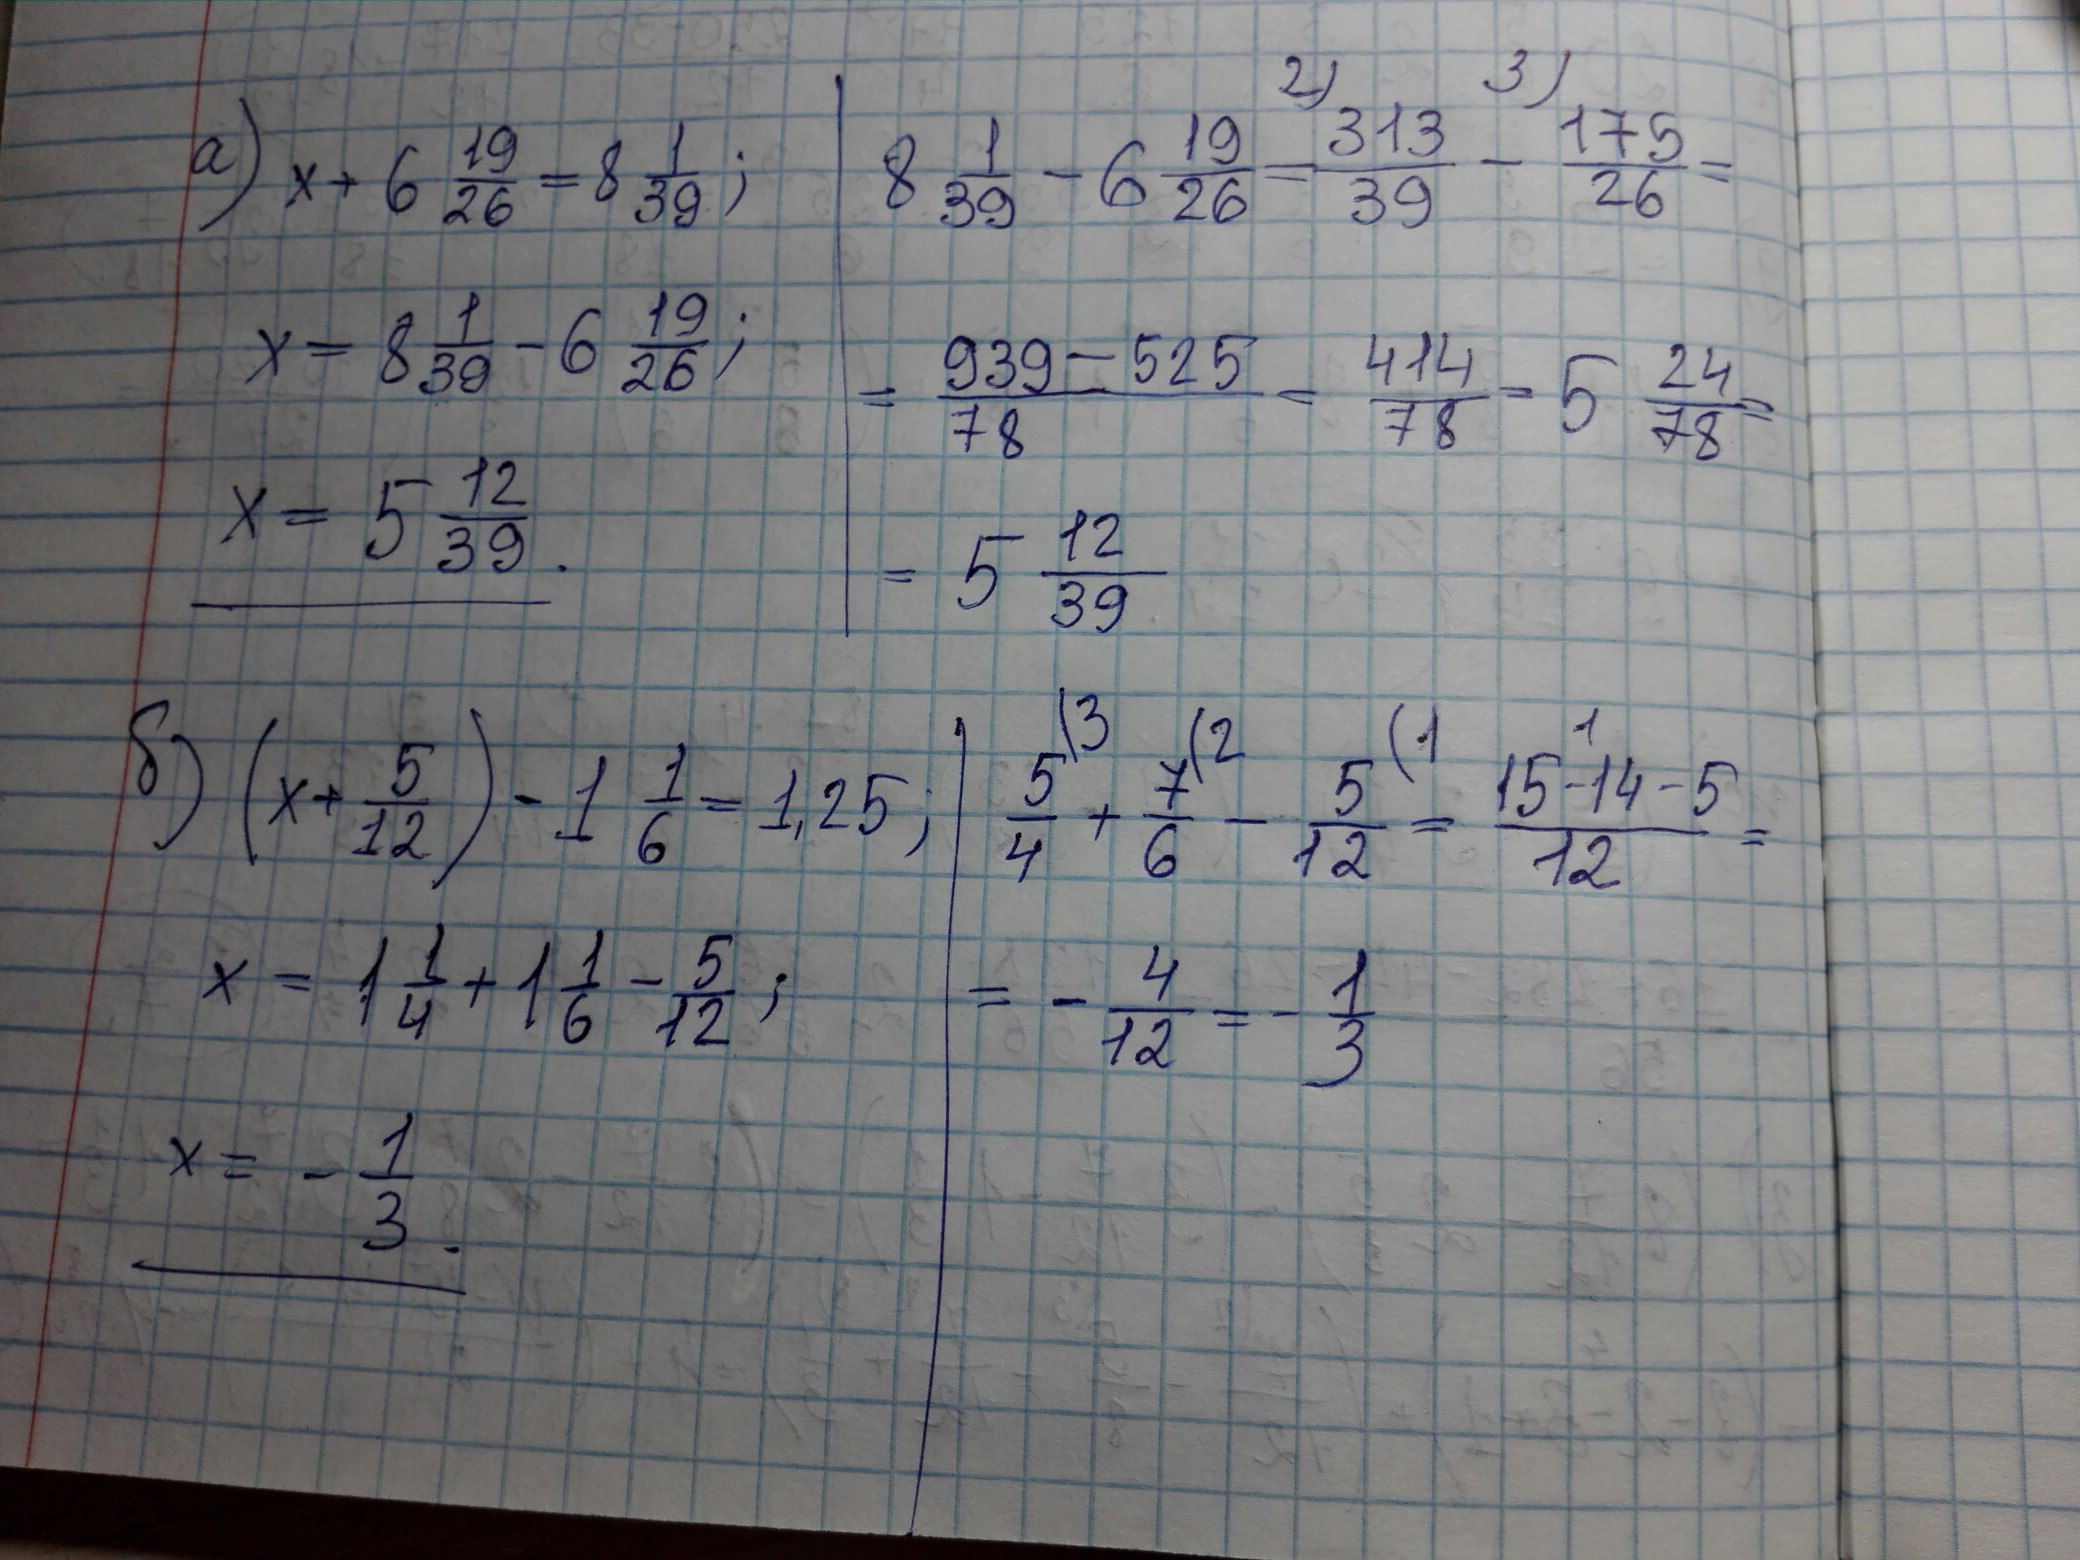 а) x + 6 19/26 = 8 1/39;
x = 8 1/39 - 6 19/26;
x = 5 12/39.
8 1/39 - 6 19/26 = 2) 313/39 - 3) 175/26 =
= 939 - 525/78 = 414/78 = 5 24/78 =
= 5 12/39
б) (x + 5/12) - 1 1/6 = 1,25;
x = 1 1/4 + 1 1/6 - 5/12;
x = - 1/3.
5/4 (3 + 7/6 (2 - 5/12 (1 = 15 - 14 - 5/12 =
1
= - 4/12 = - 1/3